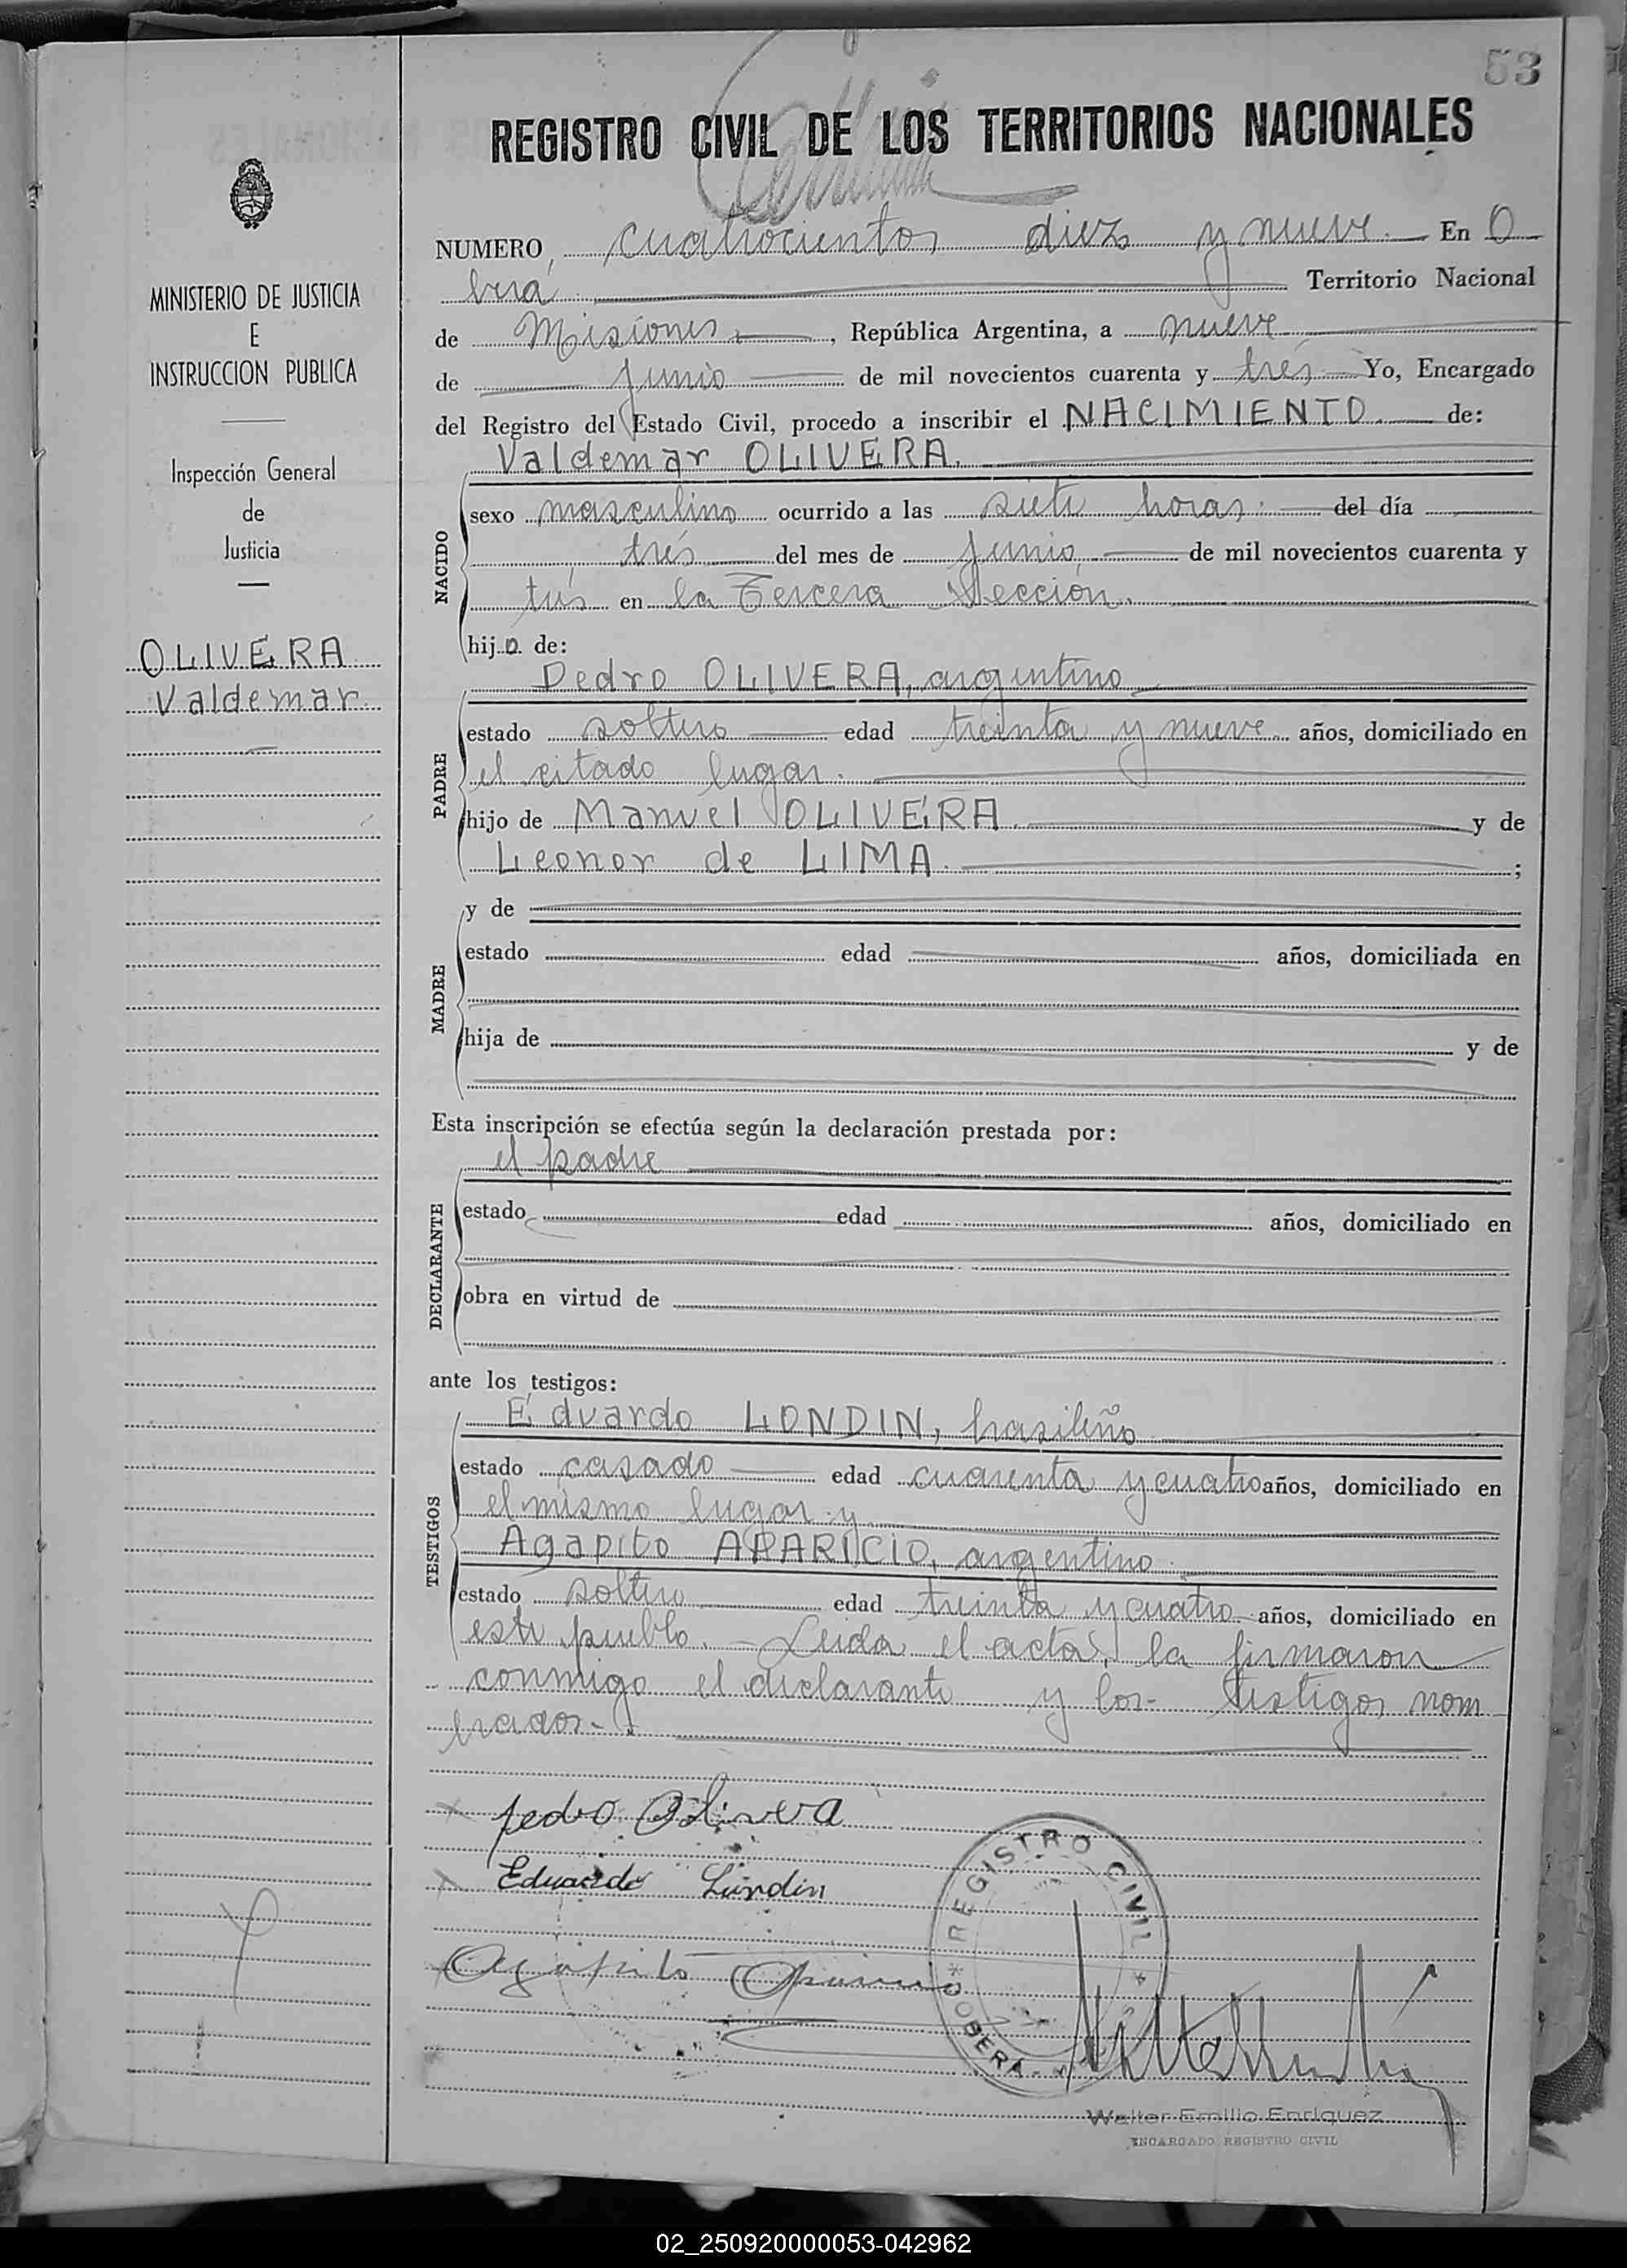 53
REGISTRO CIVIL DE LOS TERRITORIOS NACIONALES
NUMERO, cuatrocientos diez y nueve. En O
berá Territorio Nacional
de Misiones, República Argentina, a nueve
de junio de mil novecientos cuarenta y trés Yo, Encargado
del Registro del Estado Civil, procedo a inscribir el NACIMIENTO. de:
Valdemar OLIVERA.
NACIDO
sexo masculino ocurrido a las siete horas. del día
trés del mes de junio, de mil novecientos cuarenta y
trés en la Tercera Sección.
hijo de:
PADRE
Pedro OLIVERA, argentino
estado soltero edad treinta y nueve años, domiciliado en
el citado lugar.
hijo de Manuel OLIVERA. y de
Leonor de LIMA. ;
MADRE
y de
estado edad años, domiciliada en
hija de y de
Esta inscripción se efectúa según la declaración prestada por:
el padre
DECLARANTE
estado edad años, domiciliado en
obra en virtud de
ante los testigos:
TESTIGOS
Eduardo LONDIN, brasileño
estado casado edad cuarenta y cuatro años, domiciliado en
el mismo lugar y
Agapito APARICIO, argentino.
estado soltero edad treinta y cuatro años, domiciliado en
este pueblo. - Leida el acta, la firmaron
conmigo el declarante y los- testigos nom
brados.-
pedro Olivera
Eduardo Lündin
Agapito
REGISTRO CIVIL
* OBERÁ - *
Walter Emilio Enriquez
ENCARGADO REGISTRO CIVIL
MINISTERIO DE JUSTICIA
E
INSTRUCCION PUBLICA
Inspección General
de
Justicia
OLIVERA
Valdemar
02_250920000053-042962